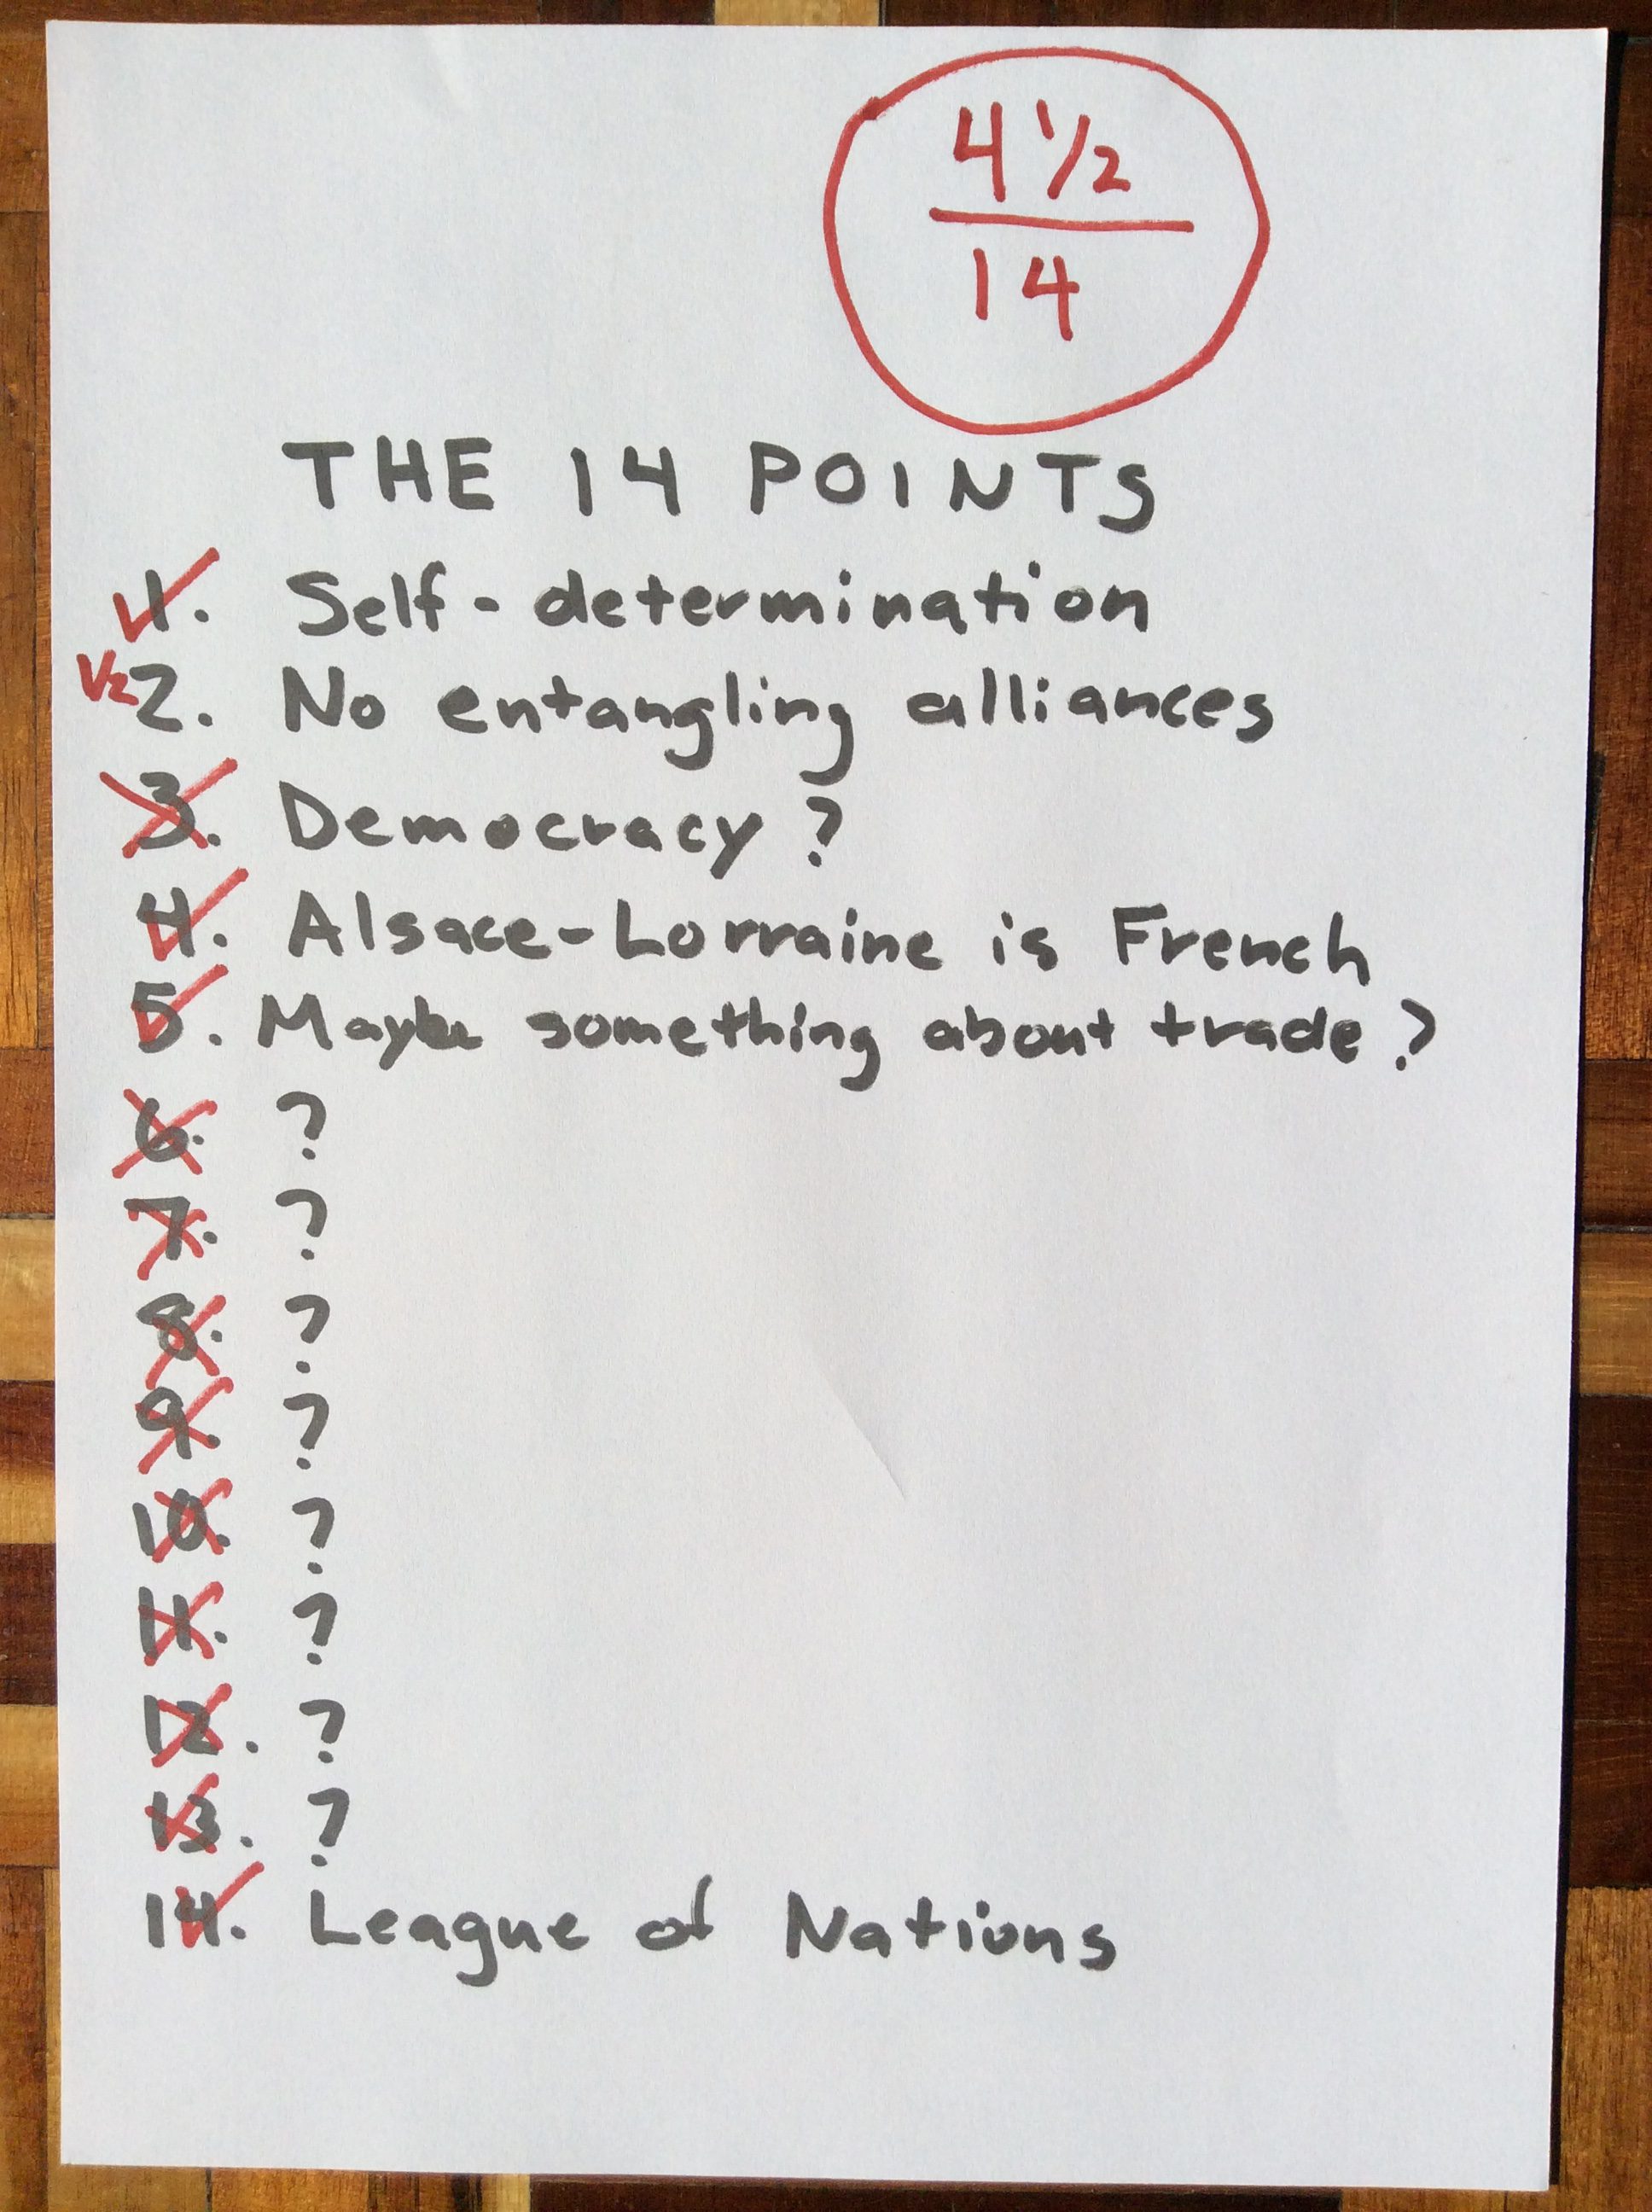 4 1/2
14
THE 14 POINTS
1. Self-determination
1/2 2. No entangling alliances
3. Democracy?
4. Alsace-Lorraine is French
5. Maybe something about trade?
6. ?
7. ?
8. ?
9. ?
10. ?
11. ?
12. ?
13. ?
14. League of Nations